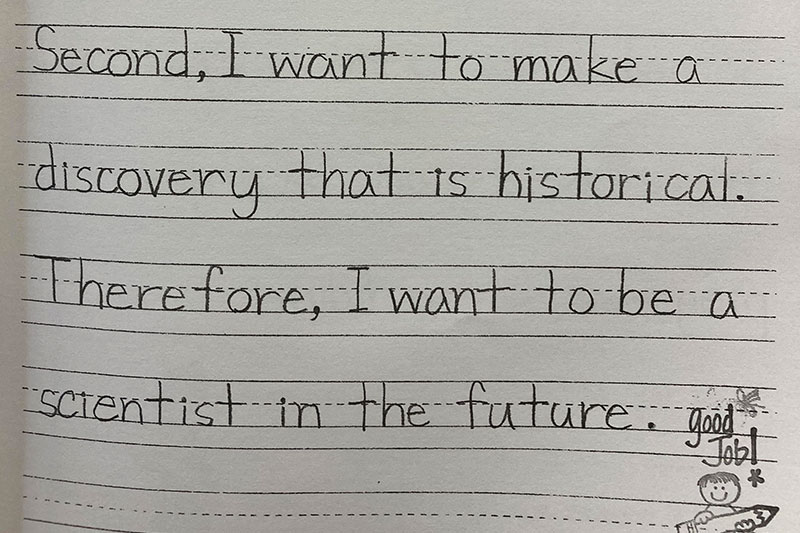 Second, I want to make a
discovery that is historical.
Therefore, I want to be a
scientist in the future.
good
Job!